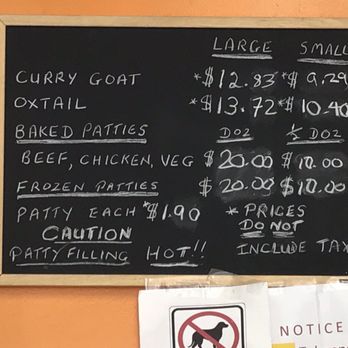 LARGE SMALL
CURRY GOAT *$12.83 *$9.29
OXTAIL *$13.72 *$10.40
BAKED PATTIES DOZ ½ DOZ
BEEF, CHICKEN, VEG $20.00 $10.00
FROZEN PATTIES $20.00 $10.00
PATTY EACH *$1.90 * PRICES
CAUTION DO NOT
PATTY FILLING HOT!! INCLUDE TAX
NOTICE